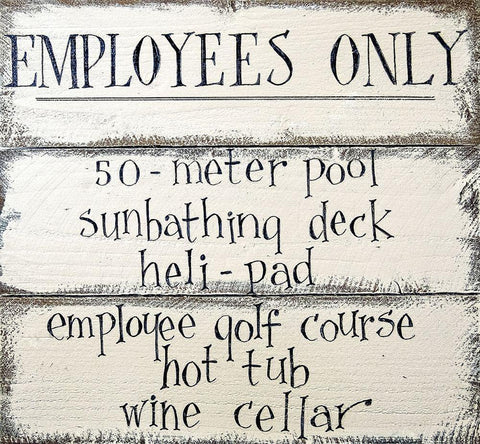 EMPLOYEES ONLY
50-meter pool
sunbathing deck
heli-pad
employee golf course
hot tub
wine cellar